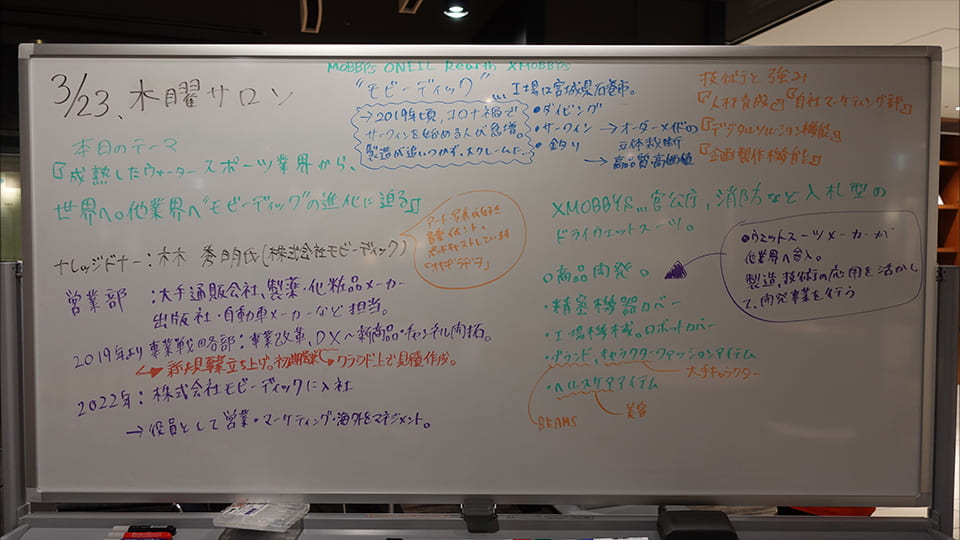 3/23、木曜サロン
本日のテーマ
『成熟したウォータースポーツ業界から、
世界へ。他業界へ"モビーディック"の進化に迫る』
ナレッジドナー：林 秀明氏(株式会社モビーディック)
アート・写真が好き
音楽イベント、
ポッドキャストしています
営業部 ：大手通販会社、製薬・化粧品メーカー
出版社・自動車メーカーなど担当。
2019年より事業戦略部：事業改革、DX〜新商品・チャンネル開拓。
新規事業立ち上げ。初期
クラウド上で見積作成。
2022年：株式会社モビーディックに入社
→役員として営業・マーケティング・海外をマネジメント。
MOBBYS ONEIL Rearth XMOBBYS
"モビーディック"
… 工場は宮城県石巻市。
→2019年頃、コロナ禍で
サーフィンを始める人が急増。
製造が追いつかず、大クレームに…
・ダイビング
・サーフィン →オーダーメイドの
立体裁断
・釣り →高品質・高価値
技術と強み
『人材育成』『自社マーケティング部』
『デジタルソリューション機能』
『企画製作機能』
XMOBBYS…官公庁，消防など入札型の
ドライウェットスーツ。
○商品開発。
・精密機器カバー
・工場機械。ロボットカバー
・ブランド、キャラクターファッションアイテム
大手キャラクター
・ヘルスケアアイテム
BEAMS
美容
・ウェットスーツメーカーが
他業界へ参入。
製造，技術の応用を活かし
て、開発事業を行う